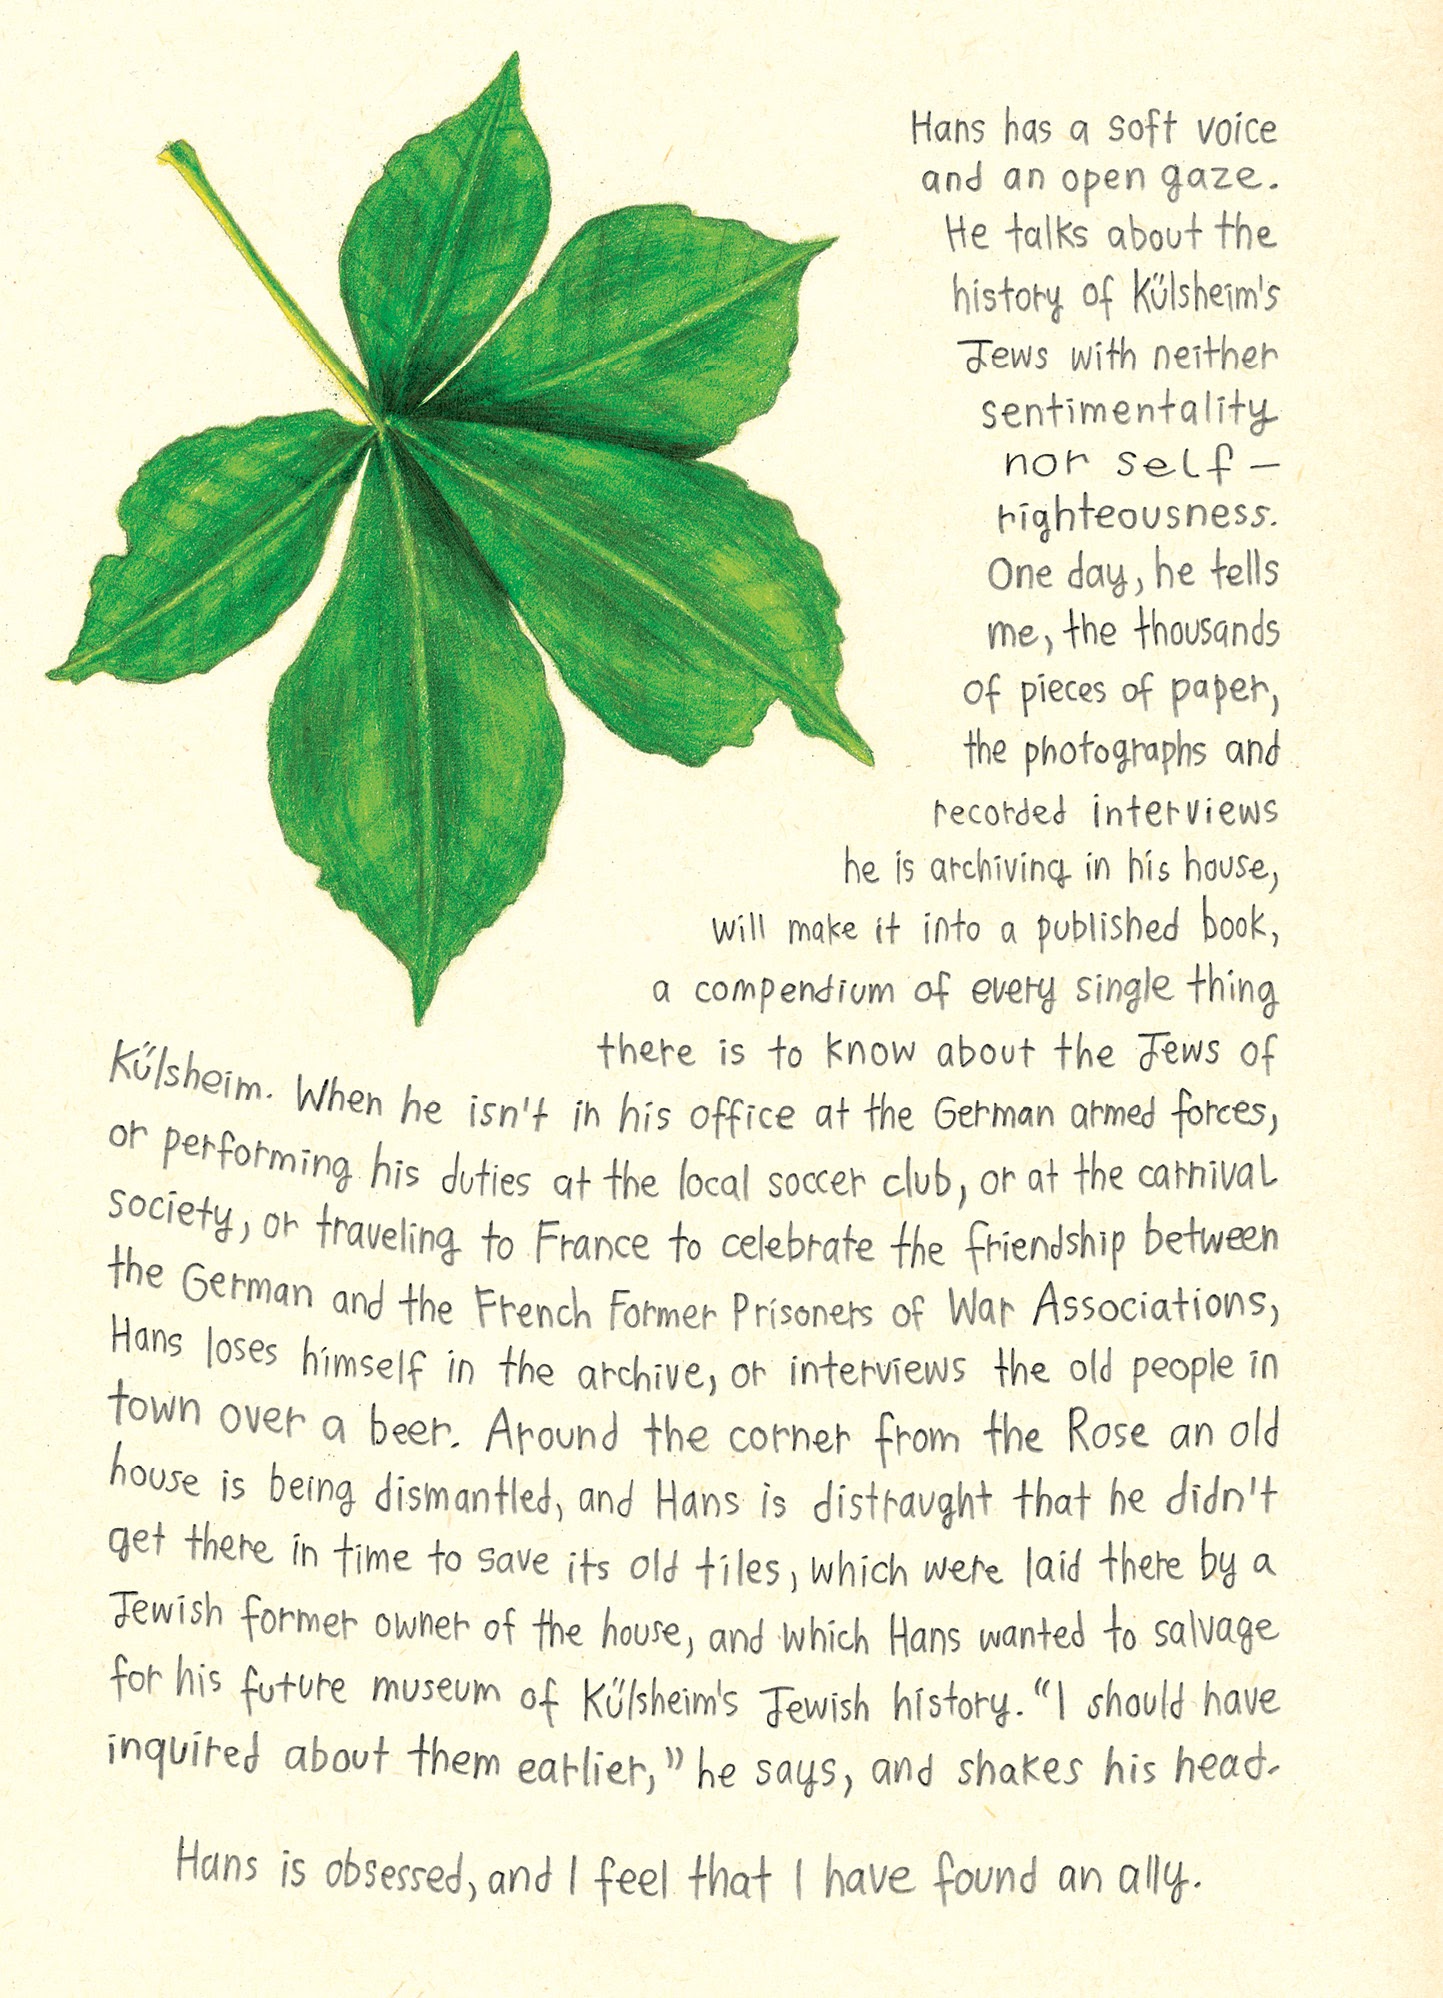 Hans has a soft voice
and an open gaze.
He talks about the
history of Külsheim's
Jews with neither
sentimentality
nor self-
righteousness.
One day, he tells
me, the thousands
of pieces of paper,
the photographs and
recorded interviews
he is archiving in his house,
will make it into a published book,
a compendium of every single thing
there is to know about the Jews of
Külsheim. When he isn't in his office at the German armed forces,
or performing his duties at the local soccer club, or at the carnival
society, or traveling to France to celebrate the friendship between
the German and the French Former Prisoners of War Associations,
Hans loses himself in the archive, or interviews the old people in
town over a beer. Around the corner from the Rose an old
house is being dismantled, and Hans is distraught that he didn't
get there in time to save its old tiles, which were laid there by a
Jewish former owner of the house, and which Hans wanted to salvage
for his future museum of Külsheim's Jewish history. "I should have
inquired about them earlier," he says, and shakes his head.
Hans is obsessed, and I feel that I have found an ally.